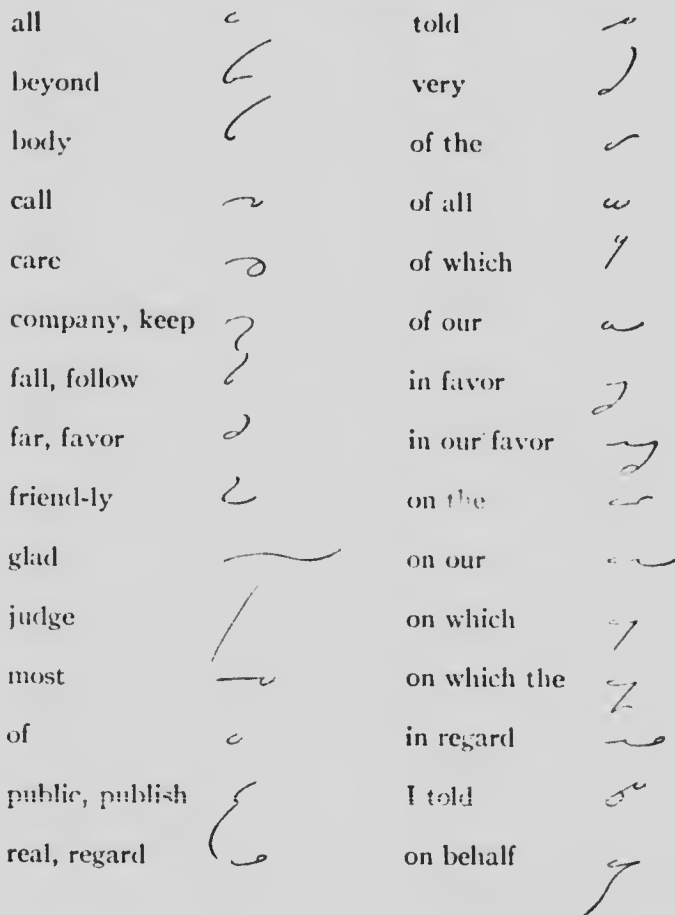 all
beyond
body
call
care
company, keep
fall, follow
far, favor
friend-ly
glad
judge
most
of
public, publish
real, regard
told
very
of the
of all
of which
of our
in favor
in our favor
on the
on our
on which
on which the
in regard
I told
on behalf